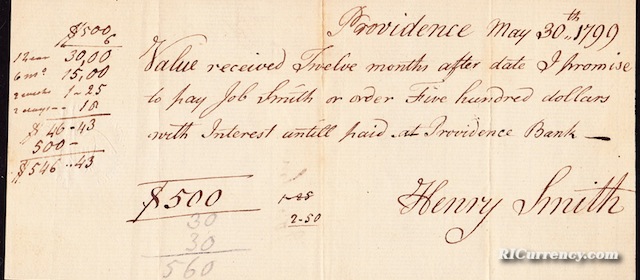 Providence May 30th, 1799
Value received Twelve months after date I promise
to pay Job Smith or order Five hundred dollars
with Interest untill paid at Providence Bank —
Henry Smith
$500
30
30
560
1-25
2-50
$500
6
1 year 30,00
6 mos 15,00
2 weeks 1-25
2 days -- 18
$ 46-43
500-
$546..43
RICurrency.com